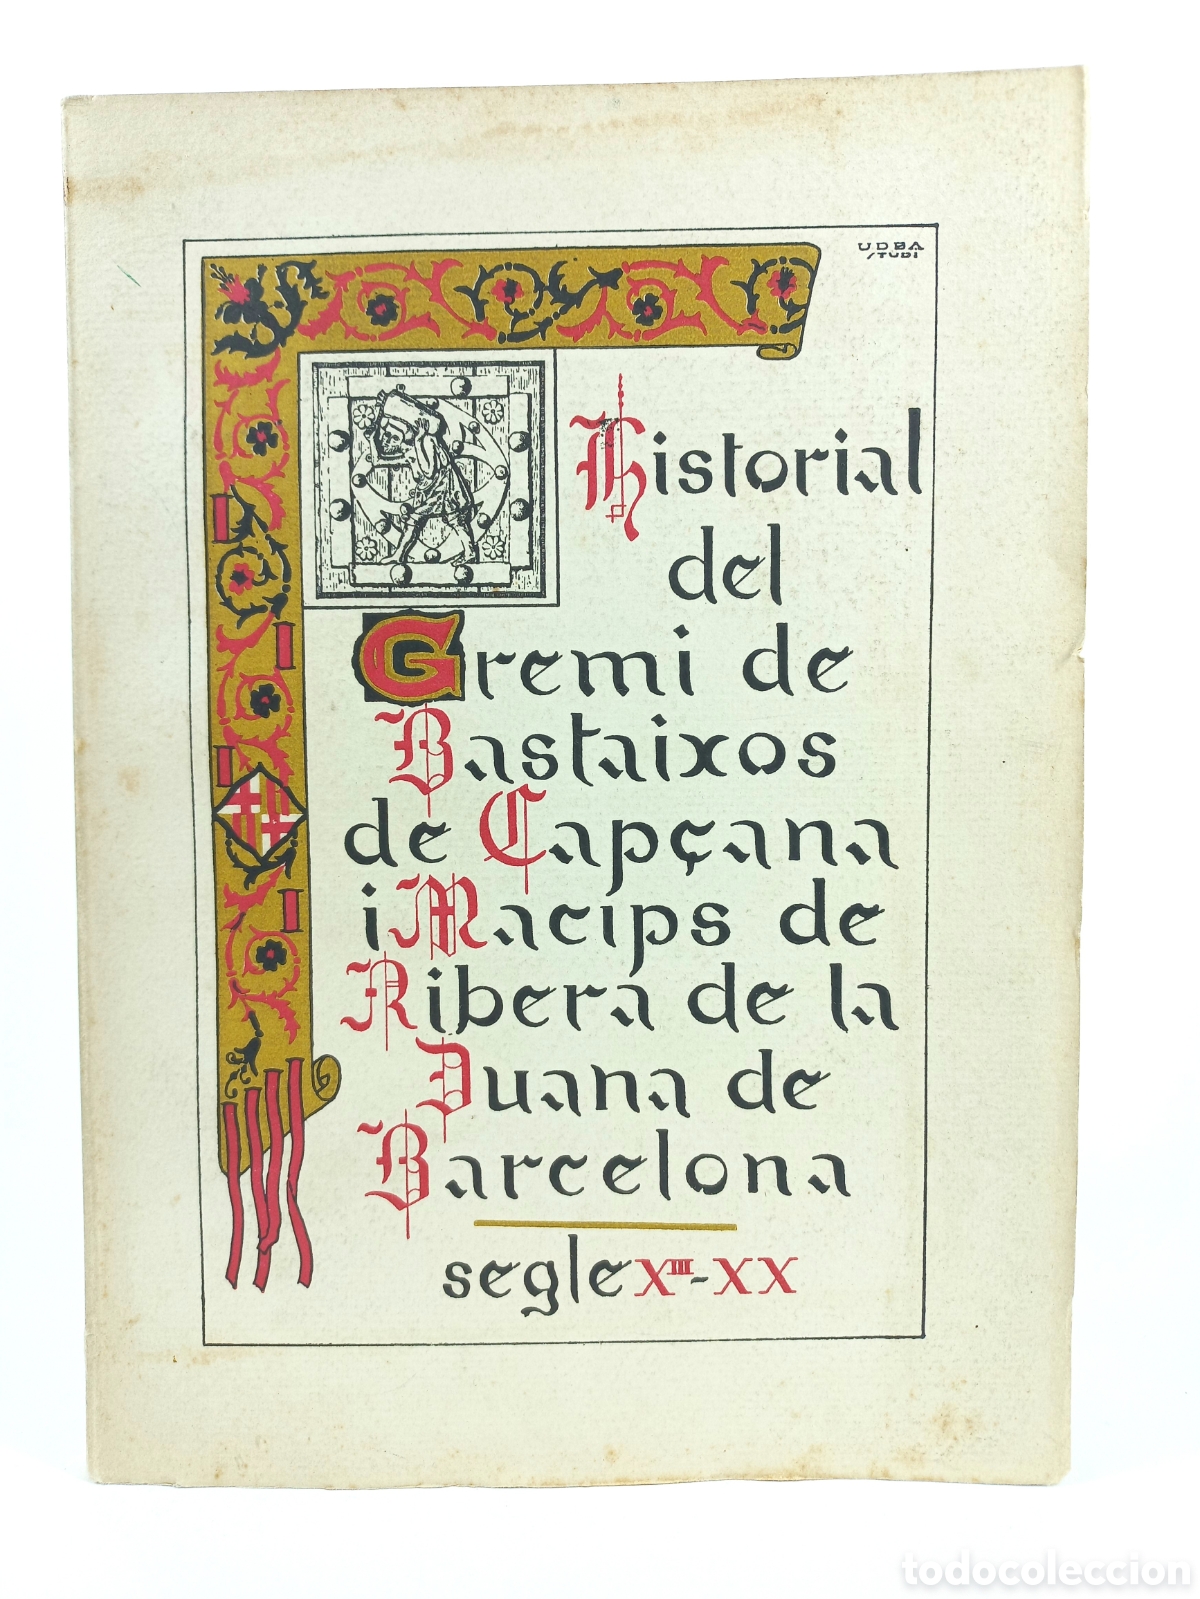 UDBA
STUDI
Historial
del
Gremi de
Bastaixos
de Capçana
i Macips de
Ribera de la
Duana de
Barcelona
segle XIII-XX
todocoleccion